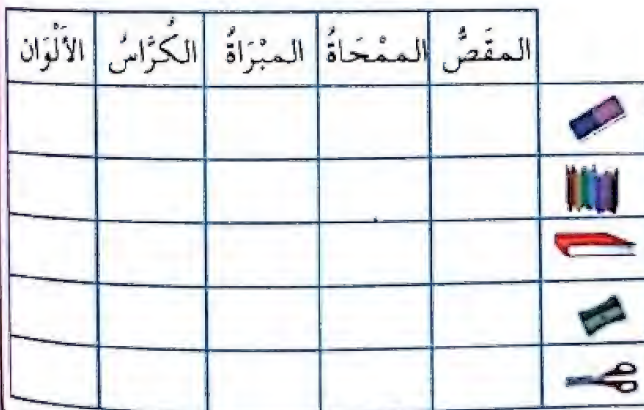 المقَصُّ الممْحَاةُ المبْرَاةُ الكُرَّاسُ الأَلْوَان